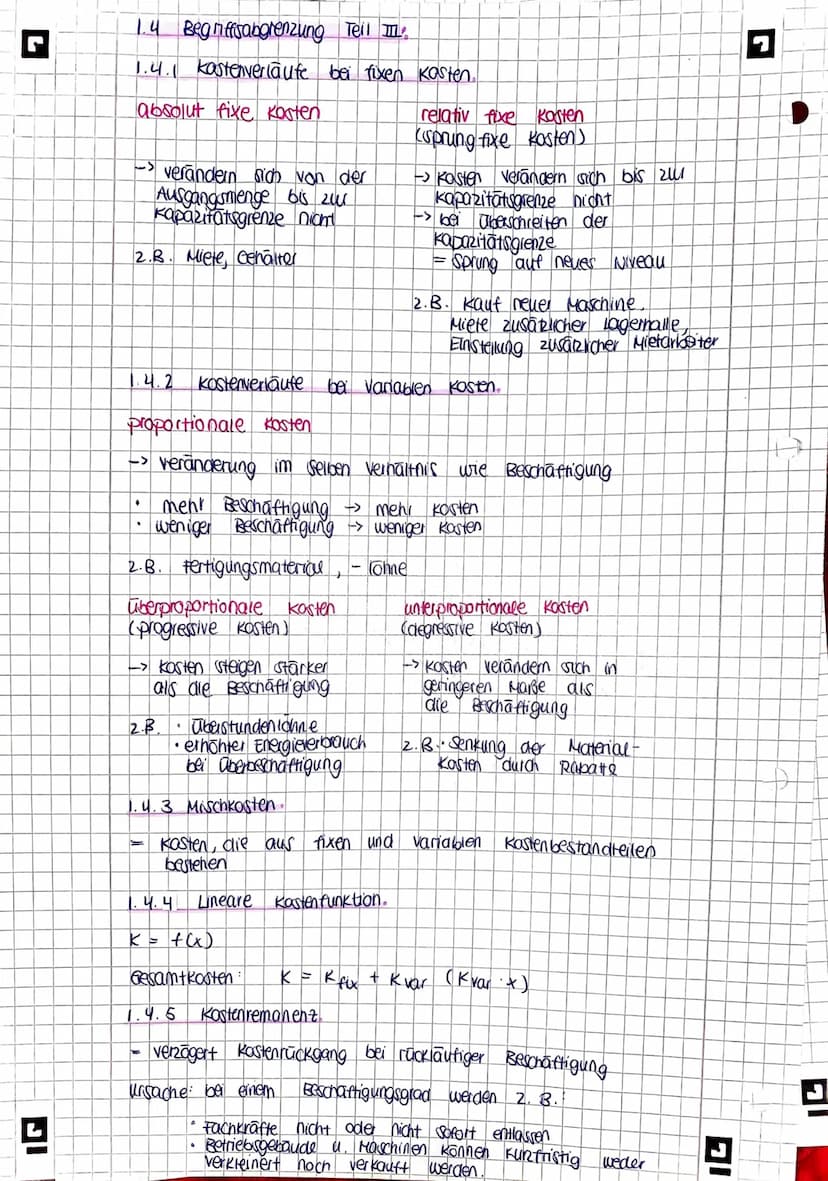 1.4 Begriffsabgrenzung Teil III:
1.4.1 Kostenverläufe bei fixen Kosten.
absolut fixe Kosten
-> verändern sich von der
Ausgangsmenge bis zur
Kapazitätsgrenze nicht
z.B. Miete, Gehälter
relativ fixe Kosten
(sprungfixe Kosten)
-> Kosten verändern sich bis zur
Kapazitätsgrenze nicht
-> bei Überschreiten der
Kapazitätsgrenze
= Sprung auf neues Niveau
z.B. Kauf neuer Maschine,
Miete zusätzlicher Lagerhalle,
Einstellung zusätzlicher Mietarbeiter
1.4.2 Kostenverläufe bei variablen Kosten.
proportionale Kosten
-> Veränderung im selben Verhältnis wie Beschäftigung
• mehr Beschäftigung -> mehr Kosten
• weniger Beschäftigung -> weniger Kosten
z.B. Fertigungsmaterial, - löhne
überproportionale Kosten
(progressive Kosten)
-> Kosten steigen stärker
als die Beschäftigung
z.B. • Überstundenlöhne
• erhöhter Energieverbrauch
bei Überbeschäftigung
unterproportionale Kosten
(degressive Kosten)
-> Kosten verändern sich in
geringeren Maße als
die Beschäftigung
z.B. • Senkung der Material-
kosten durch Rabatte
1.4.3 Mischkosten.
= Kosten, die aus fixen und variablen Kostenbestandteilen
bestehen
1.4.4 Lineare Kostenfunktion.
K = f(x)
Gesamtkosten: K = K fix + K var (K var · x)
1.4.5 Kostenremanenz.
= verzögert Kostenrückgang bei rückläufiger Beschäftigung
Ursache: bei einem Beschäftigungsgrad werden z.B.:
• Fachkräfte nicht oder nicht sofort entlassen
• Betriebsgebäude u. Maschinen können kurzfristig weder
verkleinert noch verkauft werden.